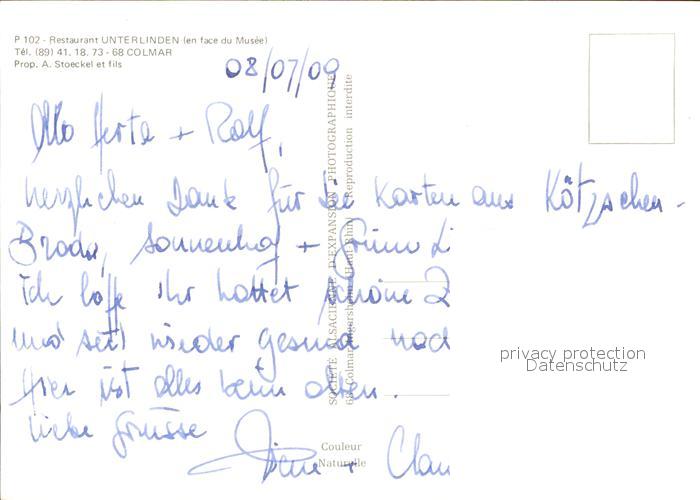 P 102 - Restaurant UNTERLINDEN (en face du Musée)
Tél. (89) 41. 18. 73 - 68 COLMAR
Prop. A. Stoeckel et fils
08/07/00
Allo Herta + Rolf,
herzlichen Dank für die Karten aus Kötzschen-
Broda, Sonnenhof +
Ich hoffe Ihr hattet schöne
und seid wieder gesund nach
Hier ist alles beim alten.
liebe Grüsse
+ Clau
SOCIÉTÉ ALSACIENNE D'EXPANSION PHOTOGRAPHIQUE
68 Colmar (Haut-Rhin) Reproduction interdite
Couleur
Naturelle
privacy protection
Datenschutz